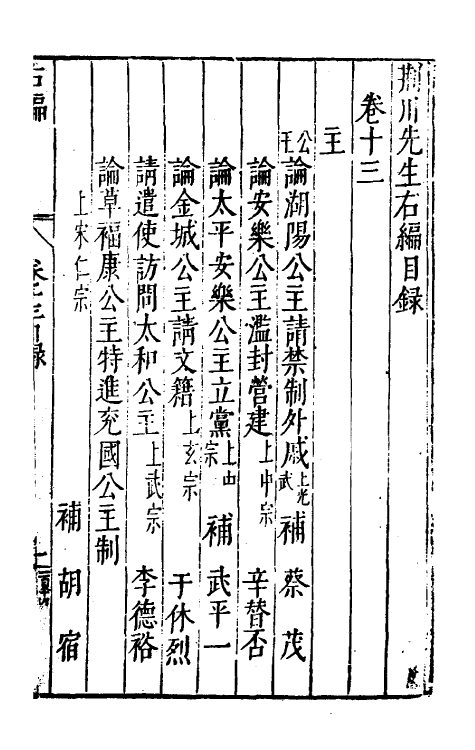 荆川先生右編目録
卷十三
主
公主
論湖陽公主請禁制外戚上光武 補 蔡茂
論安樂公主濫封營建上中宗 辛替否
論太平安樂公主立黨上中宗 補 武平一
論金城公主請文籍上玄宗 于休烈
請遣使訪問太和公主上武宗 李德裕
論草福康公主特進充國公主制
上宋仁宗 補 胡宿
右編 卷十三目録